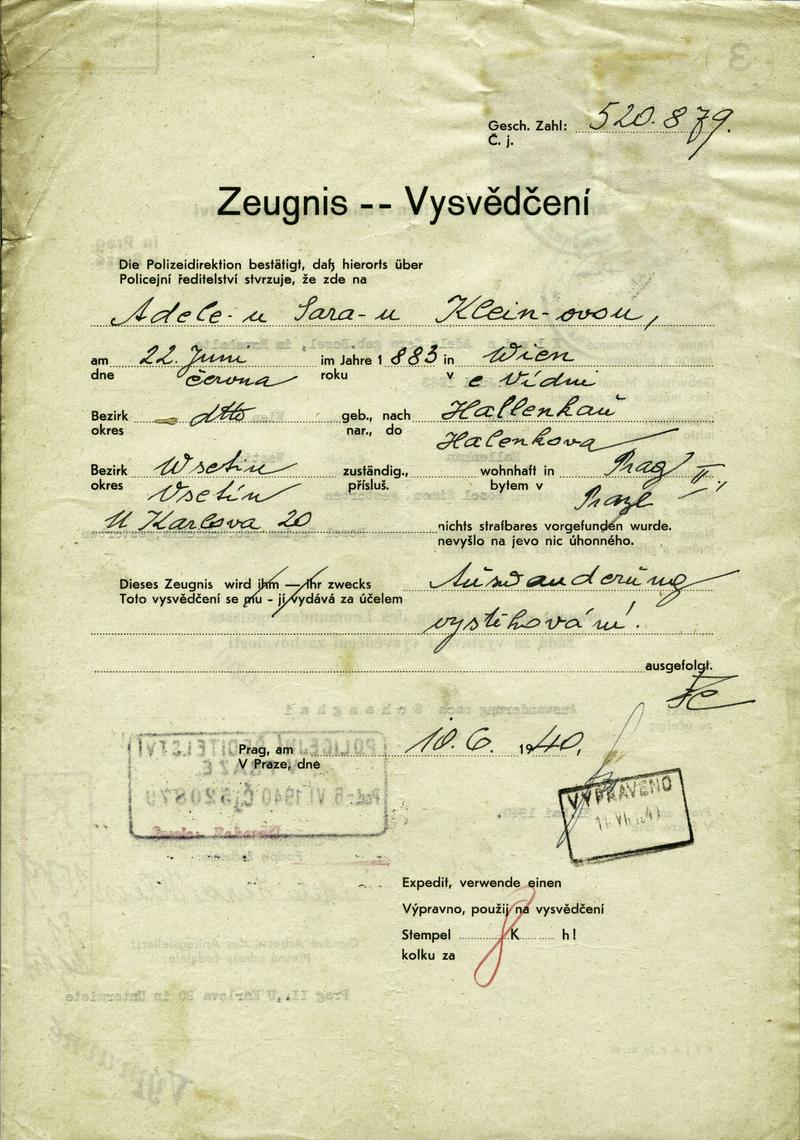 Gesch. Zahl: 520.879.
Č. j.
Zeugnis -- Vysvědčení
Die Polizeidirektion bestätigt, daß hierorts über
Policejní ředitelství stvrzuje, že zde na
Adele-u Sara-u Klein-ovou,
am 22. Juni im Jahre 1 883 in Wien
dne června roku v e Vídni
Bezirk dtto geb., nach Hallenkau
okres nar., do Halenkova
Bezirk Wsetin zuständig., wohnhaft in Prag II.,
okres Vsetín přísluš. bytem v Praze
U Karlova 20 nichts strafbares vorgefunden wurde.
nevyšlo na jevo nic úhonného.
Dieses Zeugnis wird ihm — ihr zwecks Auswanderung
Toto vysvědčení se mu - jí vydává za účelem
vystěhování.
ausgefolgt.
Prag, am 10.6. 1940,
V Praze, dne
VYPRAVENO
Expedit, verwende einen
Výpravno, použij na vysvědčení
Stempel 8 K h!
kolku za